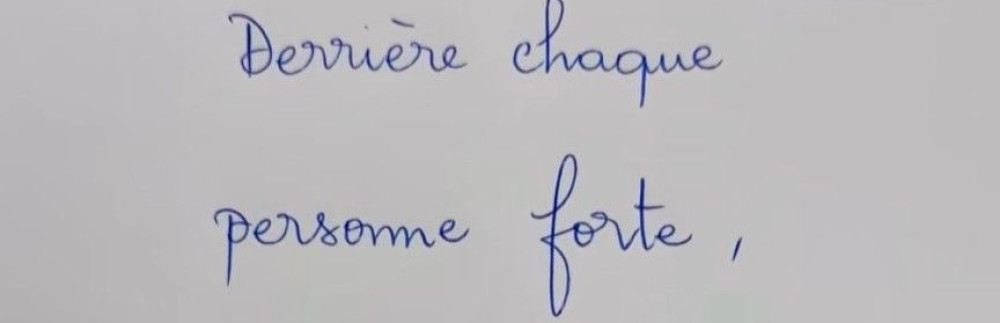 Derrière chaque
personne forte,